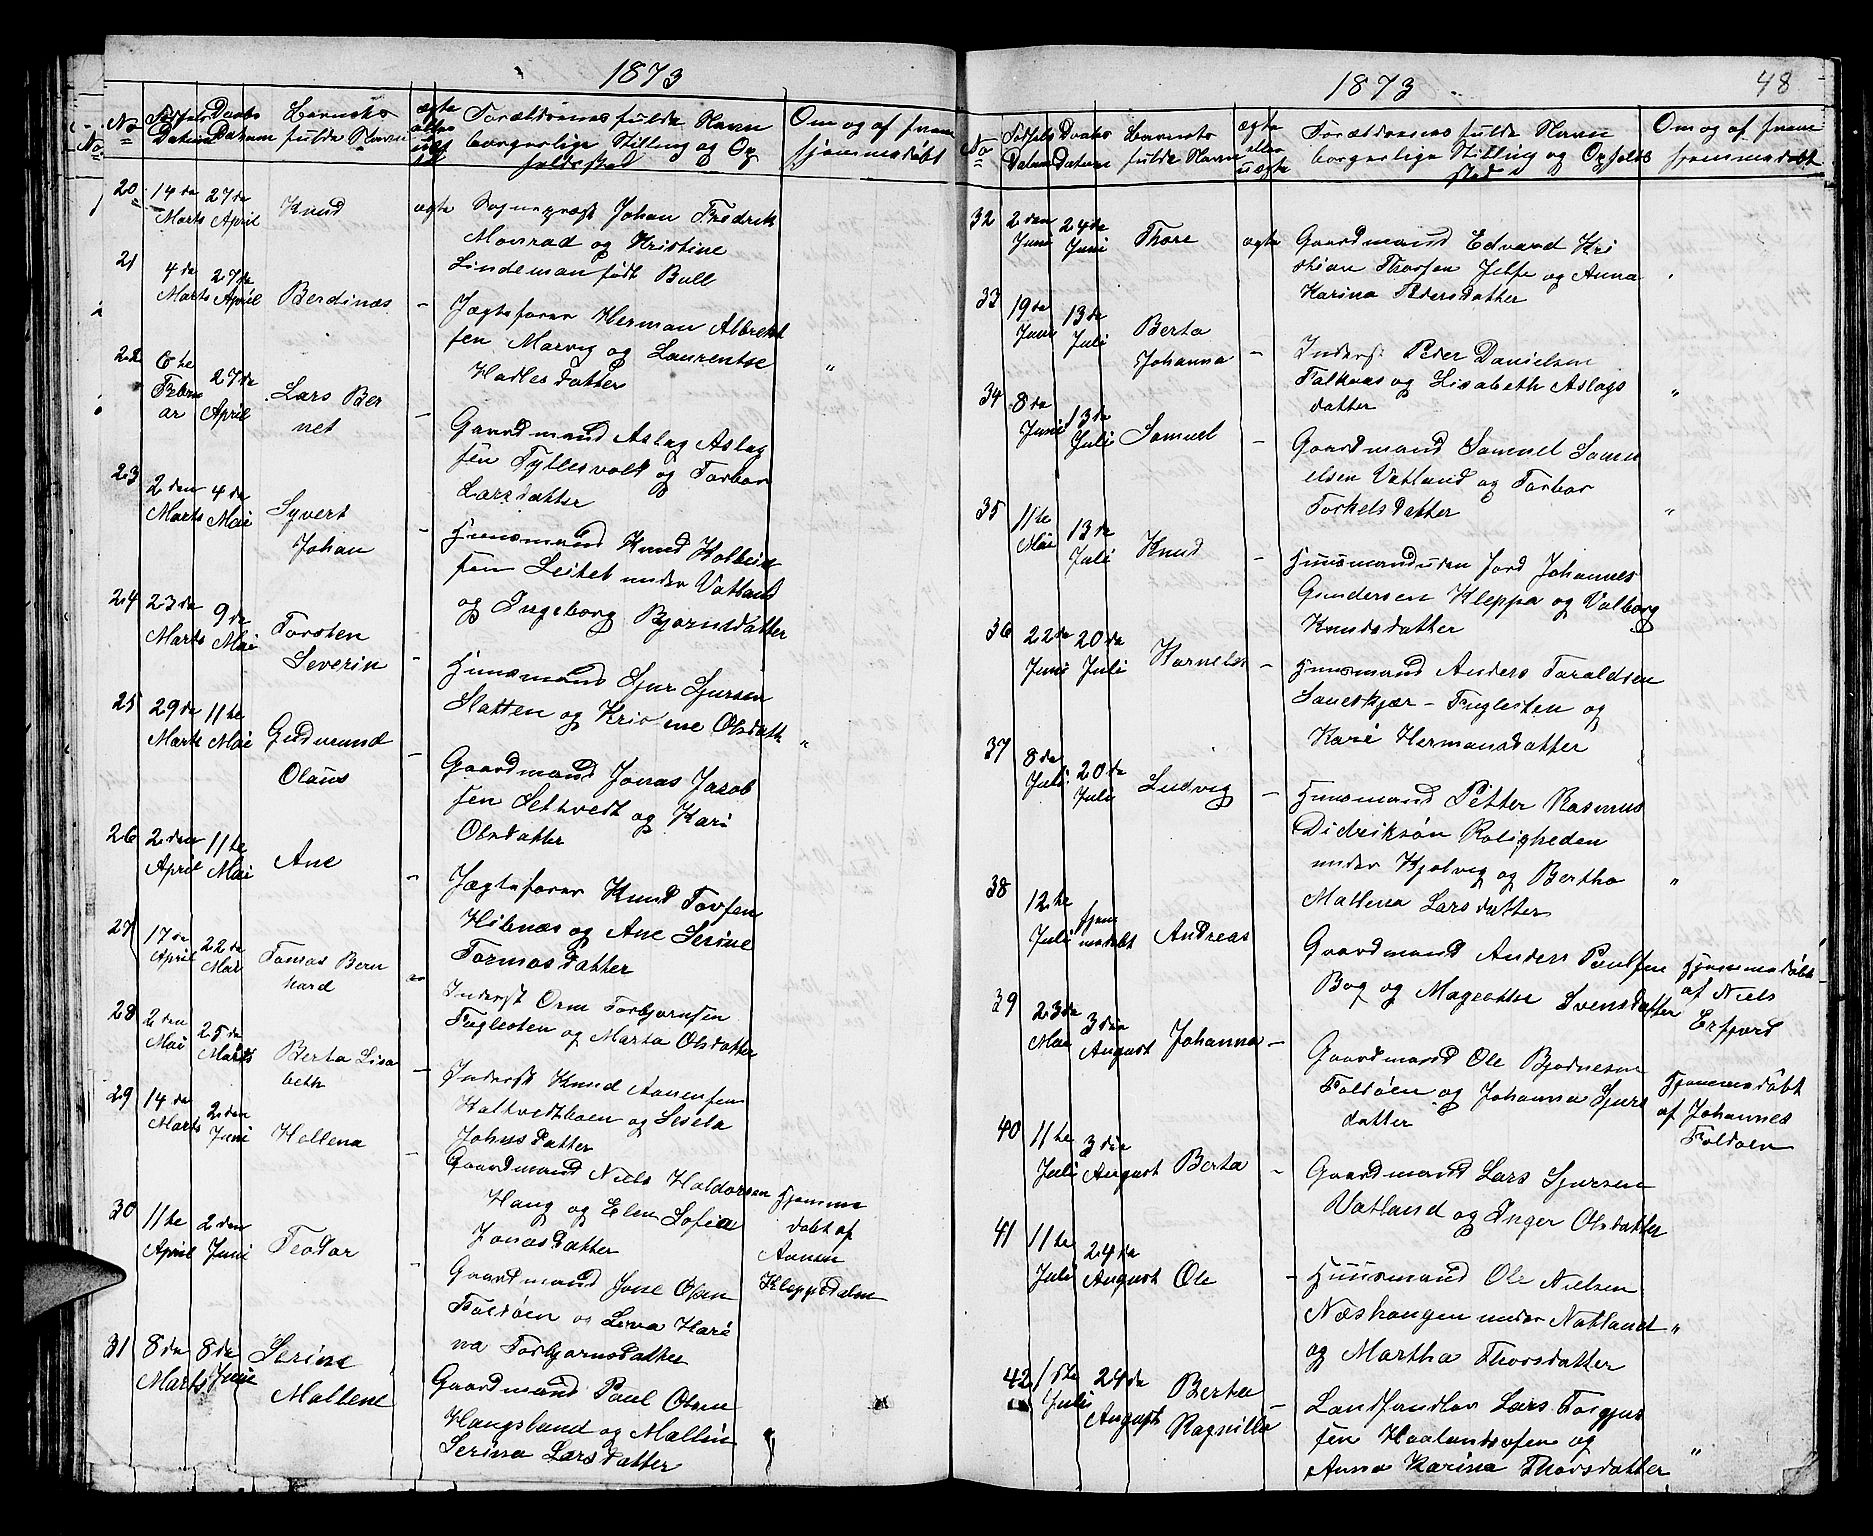 1873
No
Fødsels Datum
Daabs Datum
Barnets fulde Navn
ægte eller uægte
Forældrenes fulde Navn borgerlige Stilling og Opholdssted
Om og af hvem hjemmedøbt
20 14de Marts 27de April Knud ægte Sognepræst Johan Fredrik
Monrad og Kristine
Lindeman født Bull
21 4de Marts 27de April Berdinæs - Jægtsfører Herman Albrekt
sen Marvig og Laurentse
Hadlesdatter "
22 6te Februar 27de April Lars Ber
net - Gaardmand Aslag Aslag
sen Tyttesvolt og Torbor
Larsdatter
23 2den Marts 4de Mai Syvert
Johan - Huusmand Knud Kolbein
sen Leitet under Vatland
og Ingeborg Bjørnsdatter
24 23de Marts 9de Mai Torsten
Severin - Huusmand Sjur Sjursen
Slatten og Kristine Olsdatt "
25 29de Marts 11te Mai Gudmund
Olaus - Gaardmand Jonas Jacob
sen Sethvedt og Kari
Olsdatter
26 2den April 11te Mai Ane - Jægtsfører Knud Tovsen
Hibnæs og Ane Serine
Tormosdatter
27 17de April 22de Mai Tomas Bern
hard - Inderst Orm Torbjørnsen
Fuglesten og Marta Olsdatter
28 2den Mai 25de Marts Berta Lisa
beth - Inderst Knud Aanensen
Kaltvedtboen og Sesela
Johnsdatter
29 14de Marts 2den Juni Hellena - Gaardmand Niels Haldorsen
Haug og Elen Sofia
Jonasdatter
Hjemme
døbt af
Aanen
Kleppedalen
30 11te April 2den Juni Teodor - Gaardmand Jone Olsen
Foldøen og Lena Kari
na Torbjørnsdatter
31 8de Marts 8de Juni Serine
Mallene Gaardmand Paul Olsen
Haugsland og Mallin
Serina Larsdatter "
1873
48
No
Fødsels Datum
Daabs Datum
Barnets fulde Navn
ægte eller uægte
Forældrenes fulde Navn borgerlige Stilling og Opholdssted
Om og af hvem hjemmedøbt
32 2den Juni 24de Juni Thore ægte Gaardmand Edvard Kri
stian Thorsen Jelse og Anna
Karina Pedersdatter
33 19de Juni 13de Juli Berta
Johanna - Inderst Peder Danielsen
Falknæs og Lisabeth Aslags
datter "
34 8de Juni 13de Juli Samuel - Gaardmand Samuel Samu
elsen Vatland og Torbor
Torkelsdatter "
35 11te Mai 13de Juli Knud - Huusmanduden Jord Johannes
Gundersen Kleppa og Valborg
Knudsdatter
36 22de Juni 20de Juli Karnelus - Huusmand Anders Taraldsen
Saueskjær - Fuglesten og
Kari Hermansdatter
37 8de Juli 20de Juli Ludvig - Huusmand Petter Rasmus
Didriksøn Roligheden
under Hjølvig og Bertha
Mallena Larsdatter "
38 12te Juli hjemmedøbt Andreas Gaardmand Anders Poulsen
Bog og Magrethe Svensdatter
Hjemmedøbt
af Niels
Erfjord
39 23de Mai 3die August Johanna - Gaardmand Ole Bjørnesen
Foldøen og Johanna Sjurs
datter
Hjemmedøbt
af Johannes
Foldøen
40 11te Juli 3die August Berta - Gaardmand Lars Sjursen
Vatland og Inger Olsdatter
41 11te Juli 24de August Ole - Huusmand Ole Nielsen
Næshaugen under Natland "
og Martha Thorsdatter
42 1ste Juli 24de August Berta
Ragnille - Landhandler Lars Torgjus
sen Haalandsosen og
Anna Karina Thorsdatter "